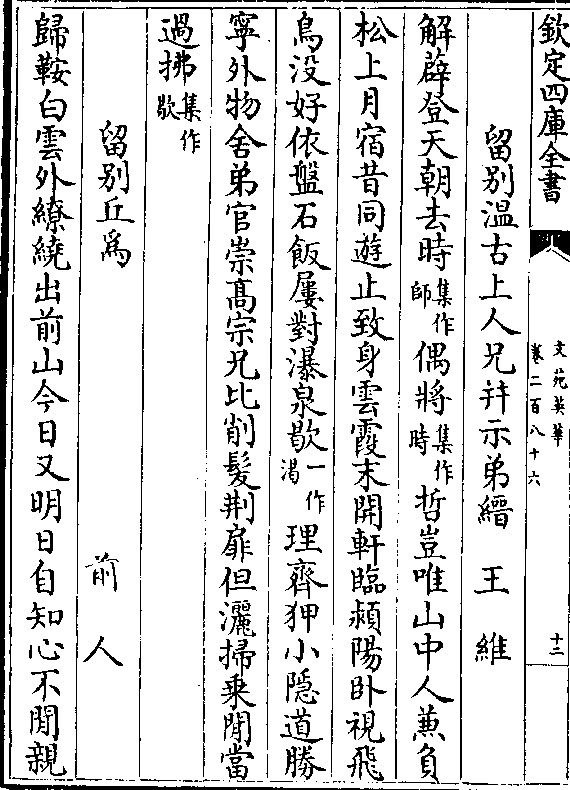 欽定四庫全書
文苑英華
卷二百八十六
十二
留别温古上人兄幷示弟縉 王維
解薜登天朝去時集作師偶將集作時哲豈唯山中人兼負
松上月宿昔同遊止致身雲霞末開軒臨潁陽卧視飛
鳥没好依盤石飯屢對瀑泉歇一作渇理齊狎小隱道勝
寧外物舍弟官崇髙宗兄比削髮荆扉但灑掃乗閒當
過拂集作歇
留别丘為 前人
歸鞍白雲外繚繞出前山今日又明日自知心不閒親